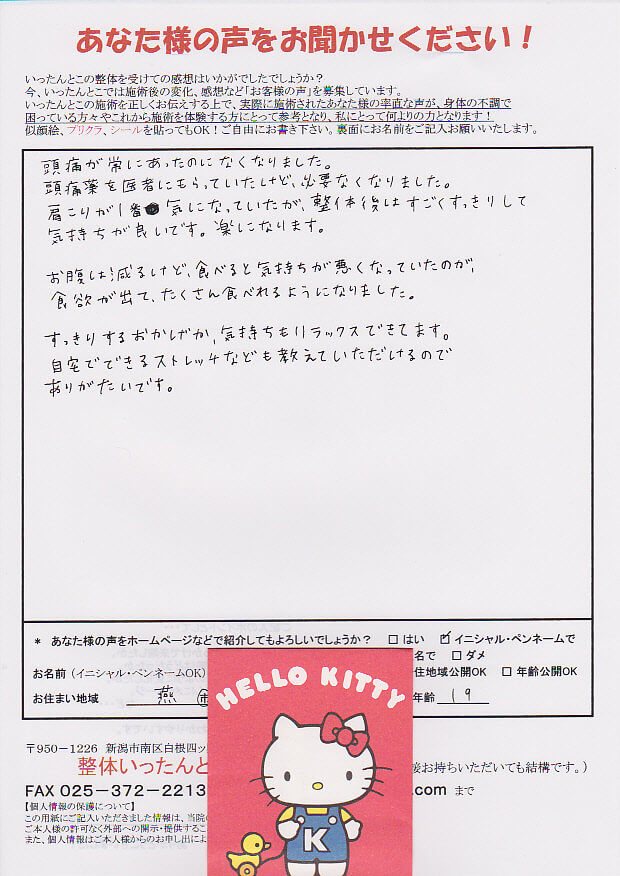 あなた様の声をお聞かせください！
いったんとこの整体を受けての感想はいかがでしたでしょうか？
今、いったんとこでは施術後の変化、感想など「お客様の声」を募集しています。
いったんとこの施術を正しくお伝えする上で、実際に施術されたあなた様の率直な声が、身体の不調で
困っている方々やこれから施術を体験する方にとって参考となり、私にとって何よりの力となります！
似顔絵、プリクラ、シールを貼ってもOK！ご自由にお書き下さい。裏面にお名前をご記入お願いいたします。
頭痛が常にあったのになくなりました。
頭痛薬を医者にもらっていたけど、必要なくなりました。
肩こりが1番 気になっていたが、整体後はすごくすっきりして
気持ちが良いです。楽になります。
お腹は減るけど、食べると気持ちが悪くなっていたのが、
食欲が出て、たくさん食べれるようになりました。
すっきりするおかげか、気持ちもリラックスできてます。
自宅でできるストレッチなども教えていただけるので
ありがたいです。
* あなた様の声をホームページなどで紹介してもよろしいでしょうか？ □ はい ☑ イニシャル・ペンネームで
名で □ ダメ
お名前（イニシャル・ペンネームOK） 住地域公開OK □ 年齢公開OK
お住まい地域 燕 市 年齢 19
HELLO KITTY
〒950－1226 新潟市南区白根四ッ
整体いったんと 接お持ちいただいても結構です。）
FAX 025－372－2213 .com まで
【個人情報の保護について】
この用紙にご記入いただきました情報は、当院の
ご本人様の許可なく外部への開示・提供するこ
また、個人情報はご本人様からのお申し出によ
K